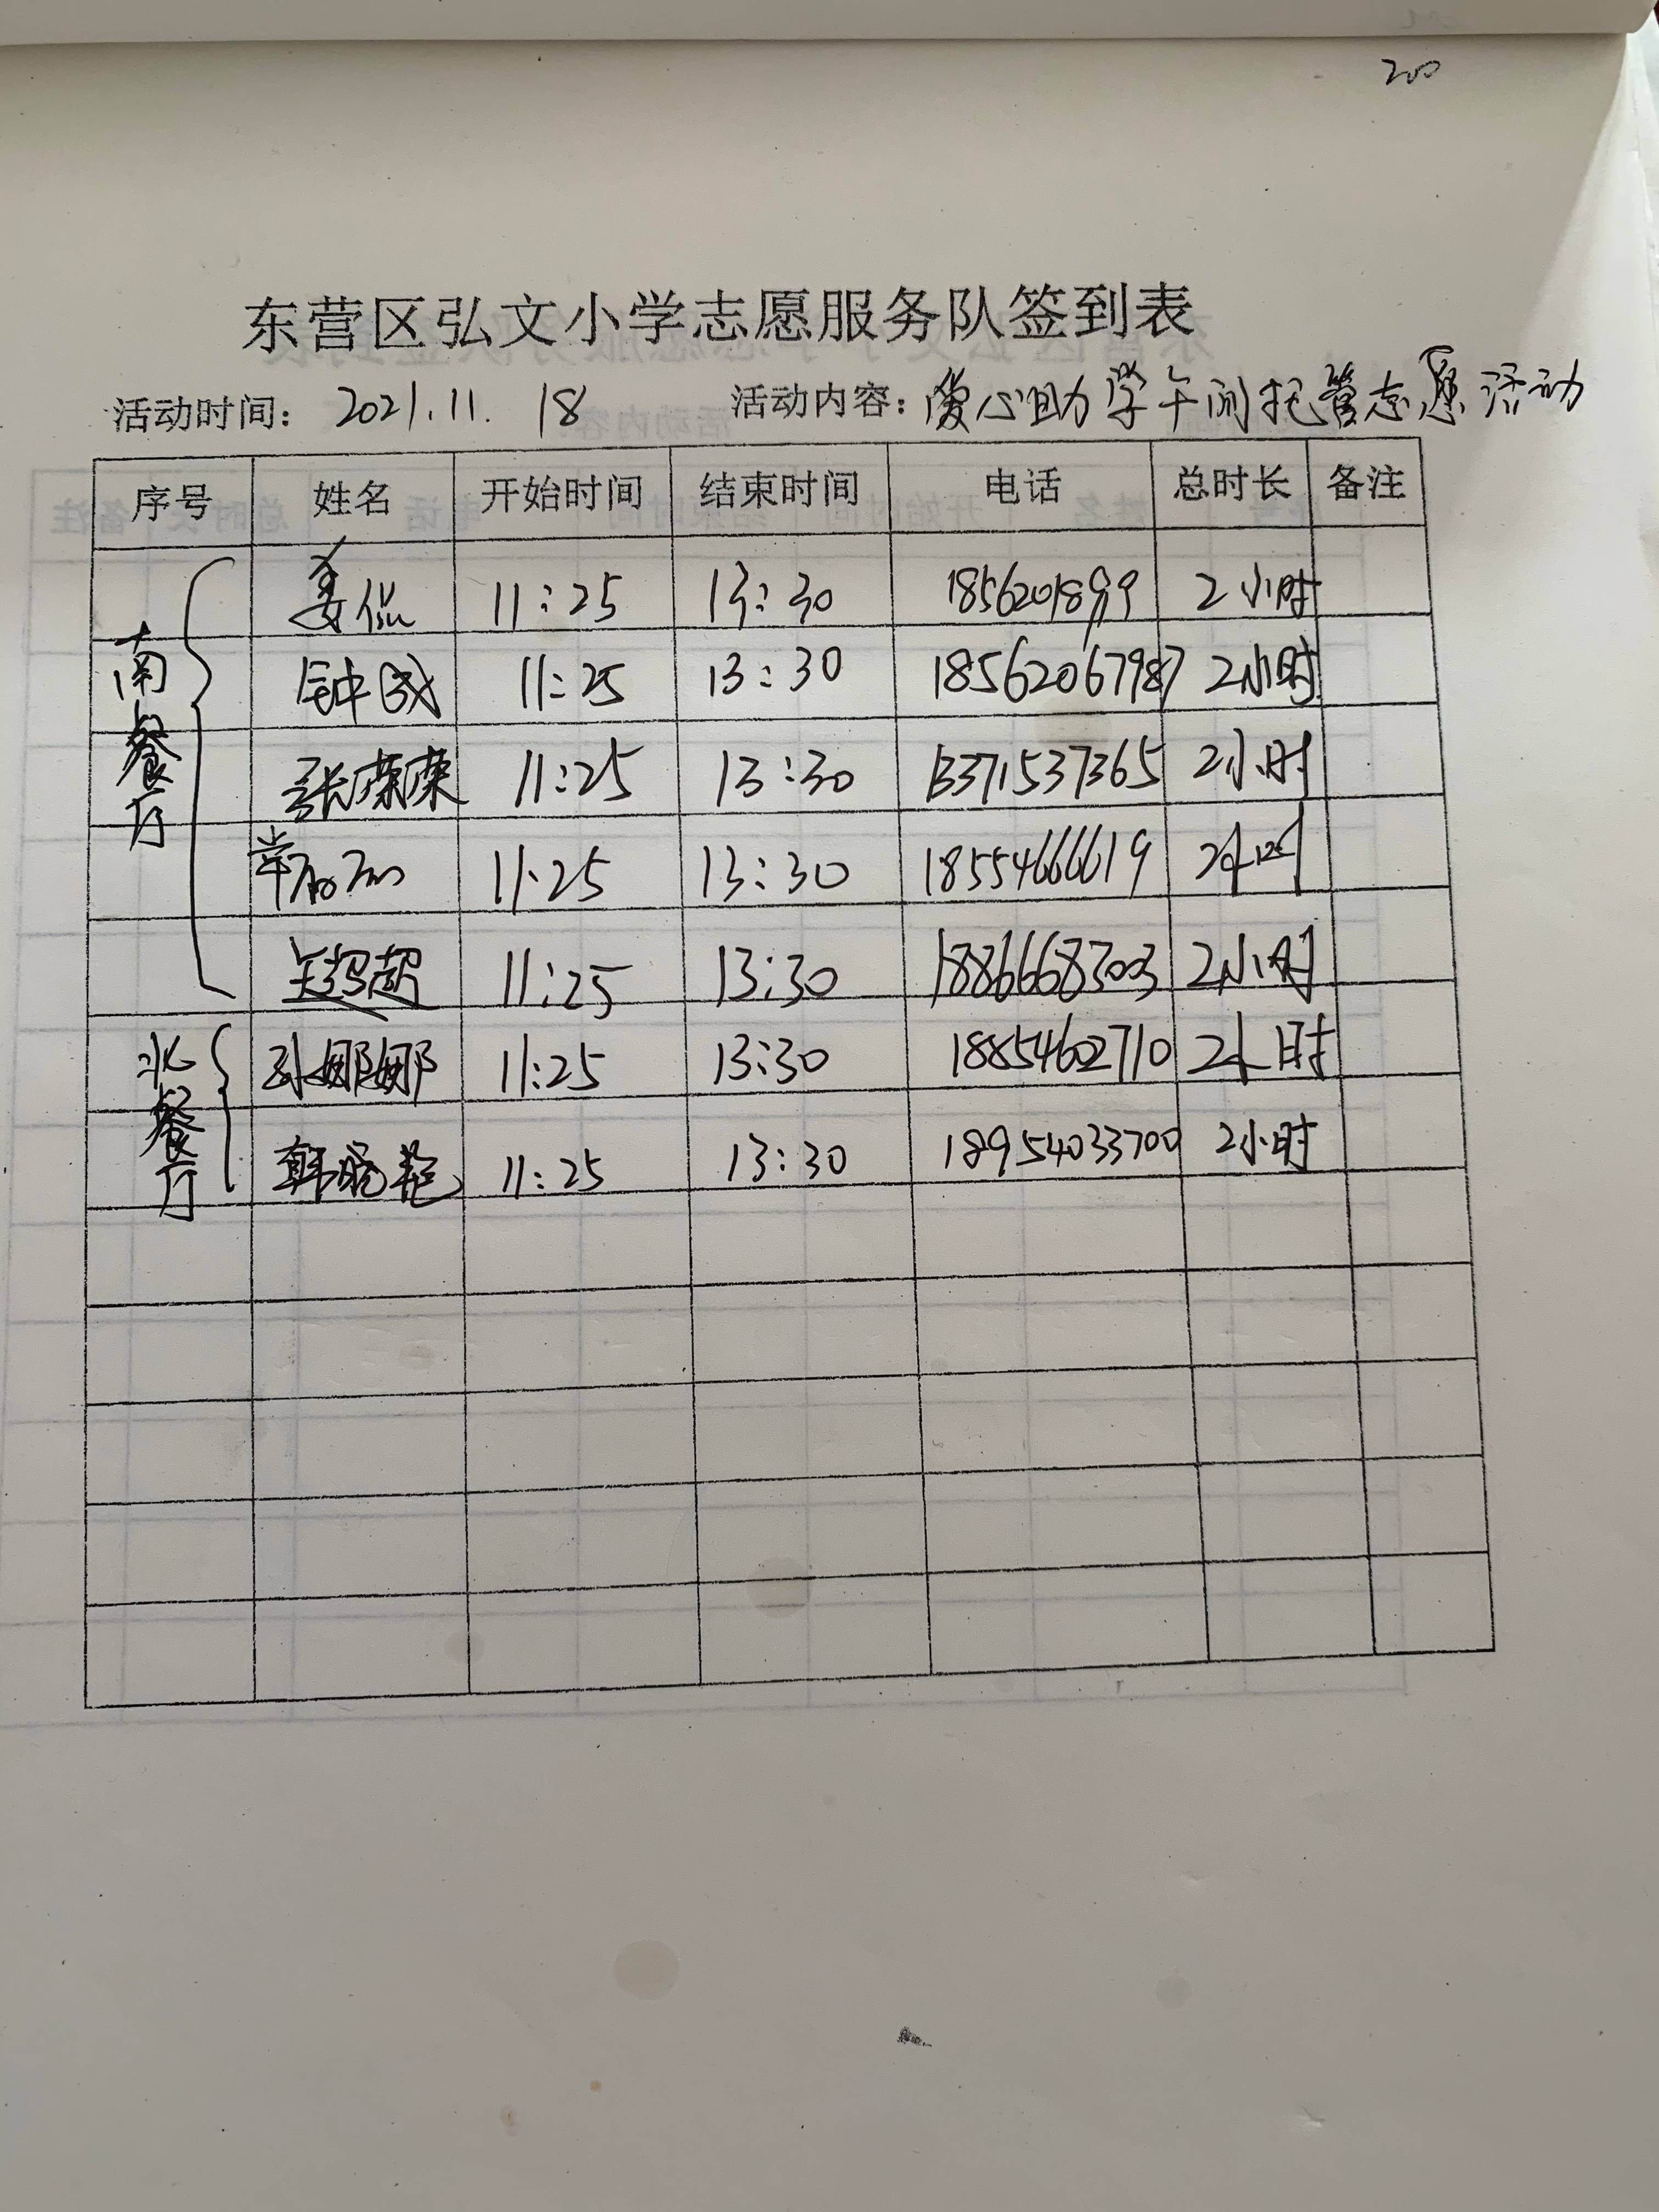 200
东营区弘文小学志愿服务队签到表
活动时间: 2021.11.18 活动内容: 爱心助学午间托管志愿活动
序号 姓名 开始时间 结束时间 电话 总时长 备注
南餐厅
姜 11:25 13:30 18562018999 2小时
钟 11:25 13:30 18562067987 2小时
张荣荣 11:25 13:30 13371537365 2小时
常 11:25 13:30 18554666619 2小时
超 11:25 13:30 18866683003 2小时
北餐厅
孙娜娜 11:25 13:30 18854602710 2小时
韩晓艳 11:25 13:30 18954033700 2小时